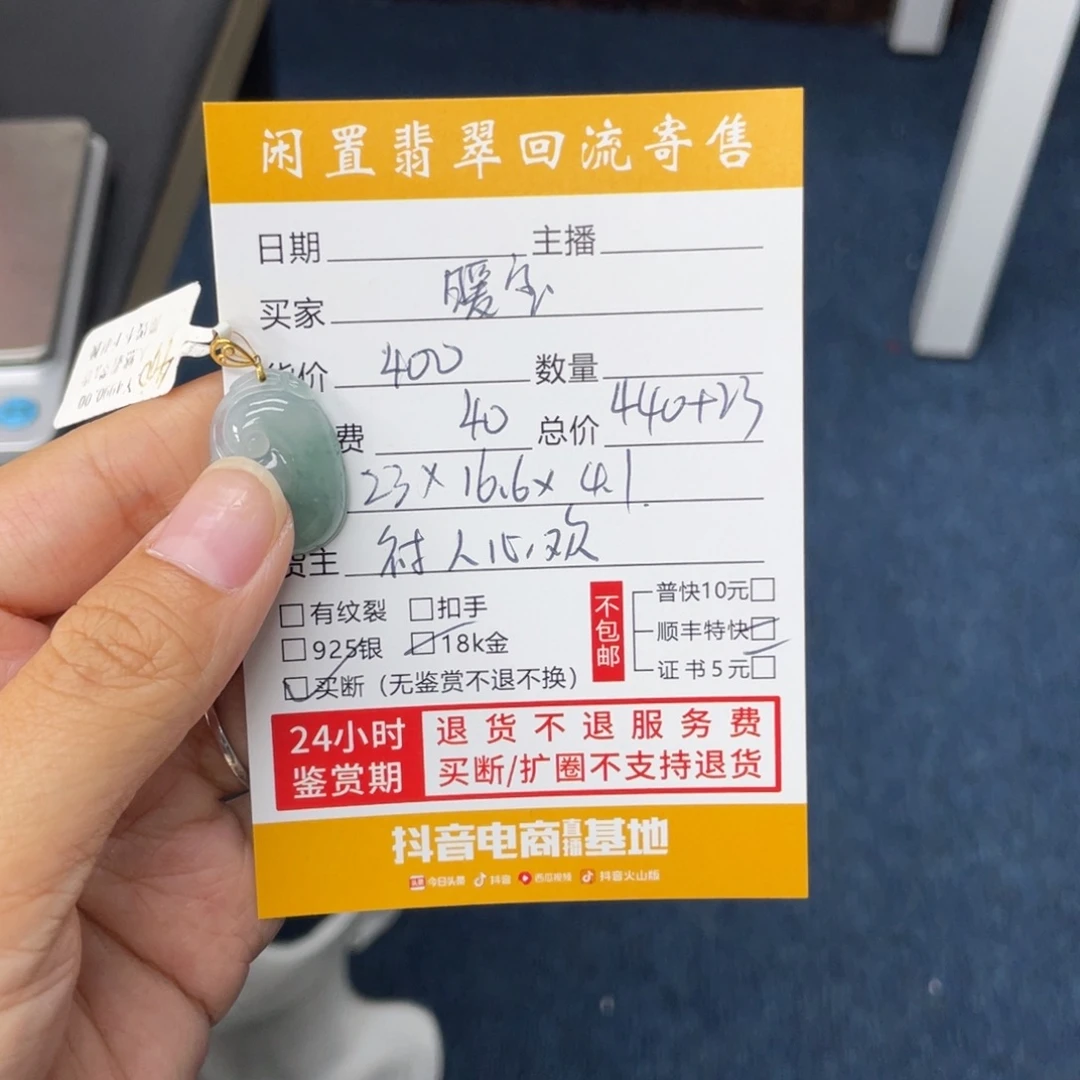 闲置翡翠回流寄售
日期 主播
买家 暖宝
货价 400 数量
费 40 总价 440+23
23×16.6×4.1
货主 衬人心欢
有纹裂 扣手
925银 18k金
买断（无鉴赏不退不换）
不包邮
普快10元
顺丰特快
证书5元
24小时鉴赏期
退货不退服务费
买断/扩圈不支持退货
抖音电商直播基地
今日头条 抖音 西瓜视频 抖音火山版